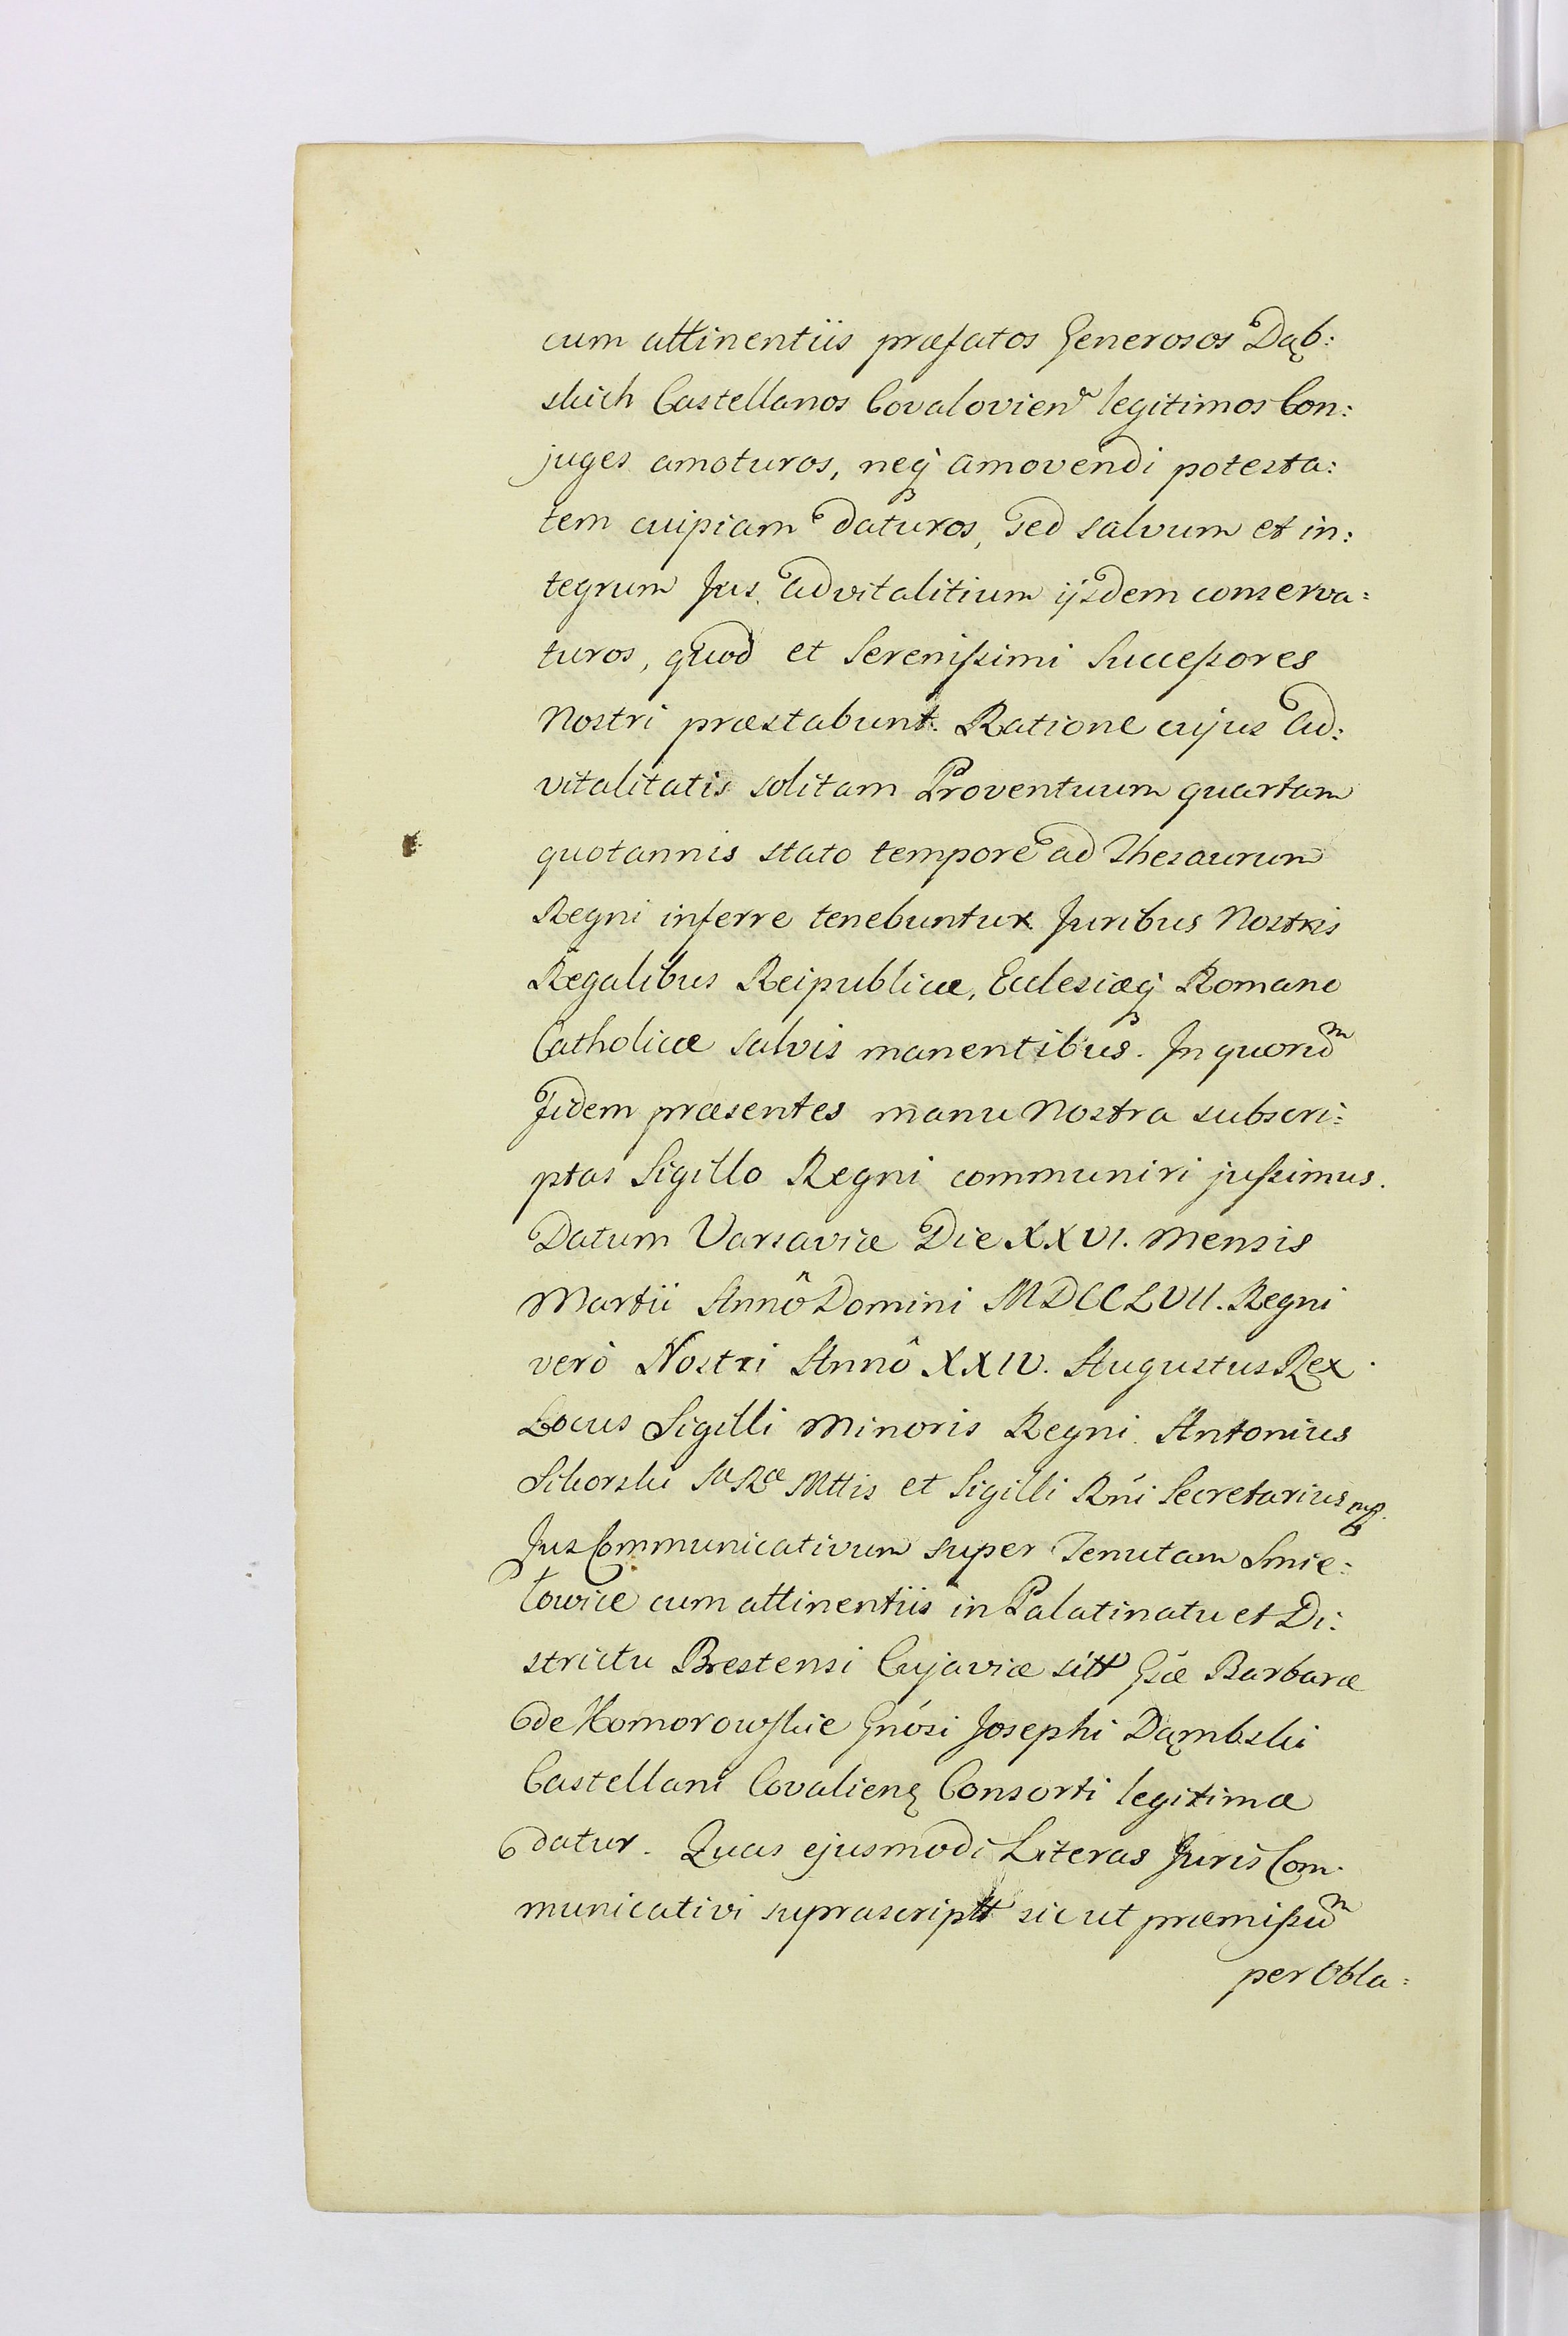 cum attinentiis præfatos Generosos Dąb:
skich Castellanos Covalovien legitimos Con:
juges amoturos, neq amovendi potesta:
tem cuipiam daturos, sed salvum et in:
tegrum Jus advitalitium ijsdem conserva:
turos, quod et Serenißimi Succeßores
Nostri præstabunt. Ratione cujus ad:
vitalitatis solitam Proventuum quartam
quotannis stato tempore ad Thesaurum
Regni inferre tenebuntur. Juribus Nostris
Regalibus Reipublicæ, Ecclesiæq Romano
Catholicæ salvis manentibus. In quorum
Fidem præsentes manu Nostra subscri:
ptas Sigillo Regni communiri jußimus.
Datum Varsaviæ Die XXVI. Mensis
Martii Annô Domini MDCCLVII. Regni
verò Nostri Annô XXIV. Augustus Rex
Locus Sigilli Minoris Regni. Antonius
Sikorski Sæ Ræ Mttis et Sigilli Rni Secretarius mp.
Jus Communicativum super Tenutam Smie:
lowice cum attinentiis in Palatinatu et Di:
strictu Brestensi Cujaviæ sitt Gsæ Barbaræ
de Komorowskie Gnosi Josephi Dąmbski
Castellani Covalien Consorti legitimæ
datur. Quas ejusmodi Literas Juris Com:
municativi suprascriptt sic ut præmißum
per Obla: